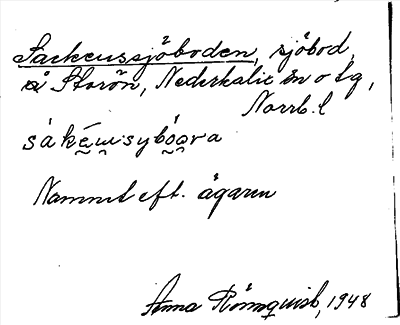 Sackeussjöboden, sjöbod,
å Storön, Nederkalix sn o lg,
Norrb. l
Namnet eft. ägaren
Anna Rönnquist, 1948